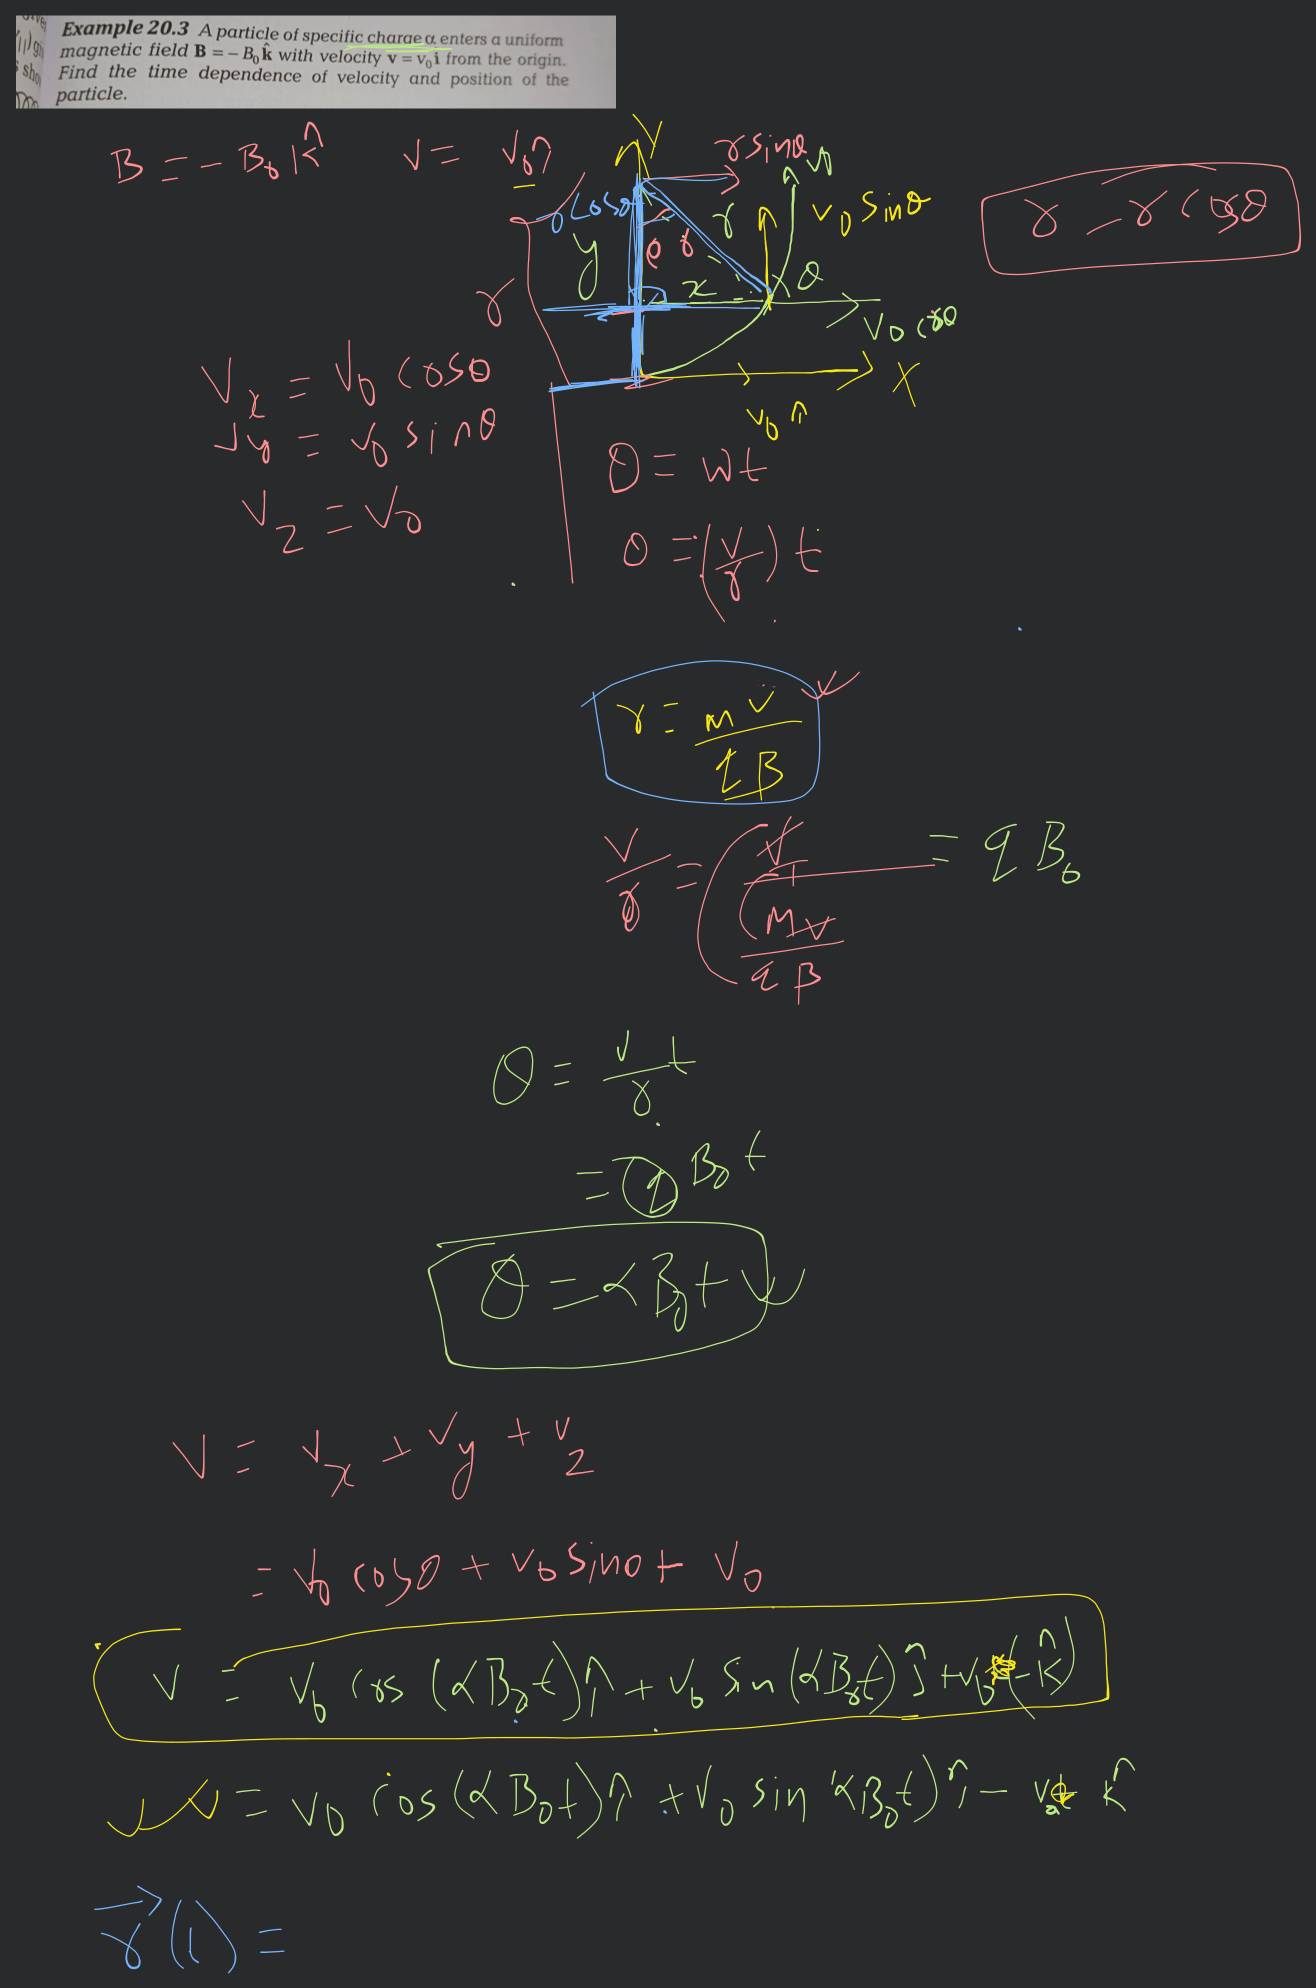 Example 20.3 A particle of specific charge α enters a uniform
magnetic field B = – B₀ k̂ with velocity v = v₀ î from the origin.
Find the time dependence of velocity and position of the
particle.
B = - B₀ k̂
v = v₀ î
y
r sinθ
v₀
r cosθ
r
v₀ sinθ
r = r cosθ
y
θ
x
θ
r
v₀ cosθ
X
v₀ î
Vx = V₀ cosθ
vy = v₀ sinθ
Vz = V₀
θ = wt
θ = (v/r) t
r = mv/qB
v/r = (v/(mv/qB) = qB₀
θ = v/r t
= q B₀ t
θ = αB₀t
V = vx + vy + vz
= v₀ cosθ + v₀ sinθ + v₀
V = v₀ cos (αB₀t) î + v₀ sin (αB₀t) ĵ + v₀ (-k̂)
v = v₀ cos (αB₀t) î + v₀ sin αB₀t) ĵ - k̂
r⃗ ( ) =